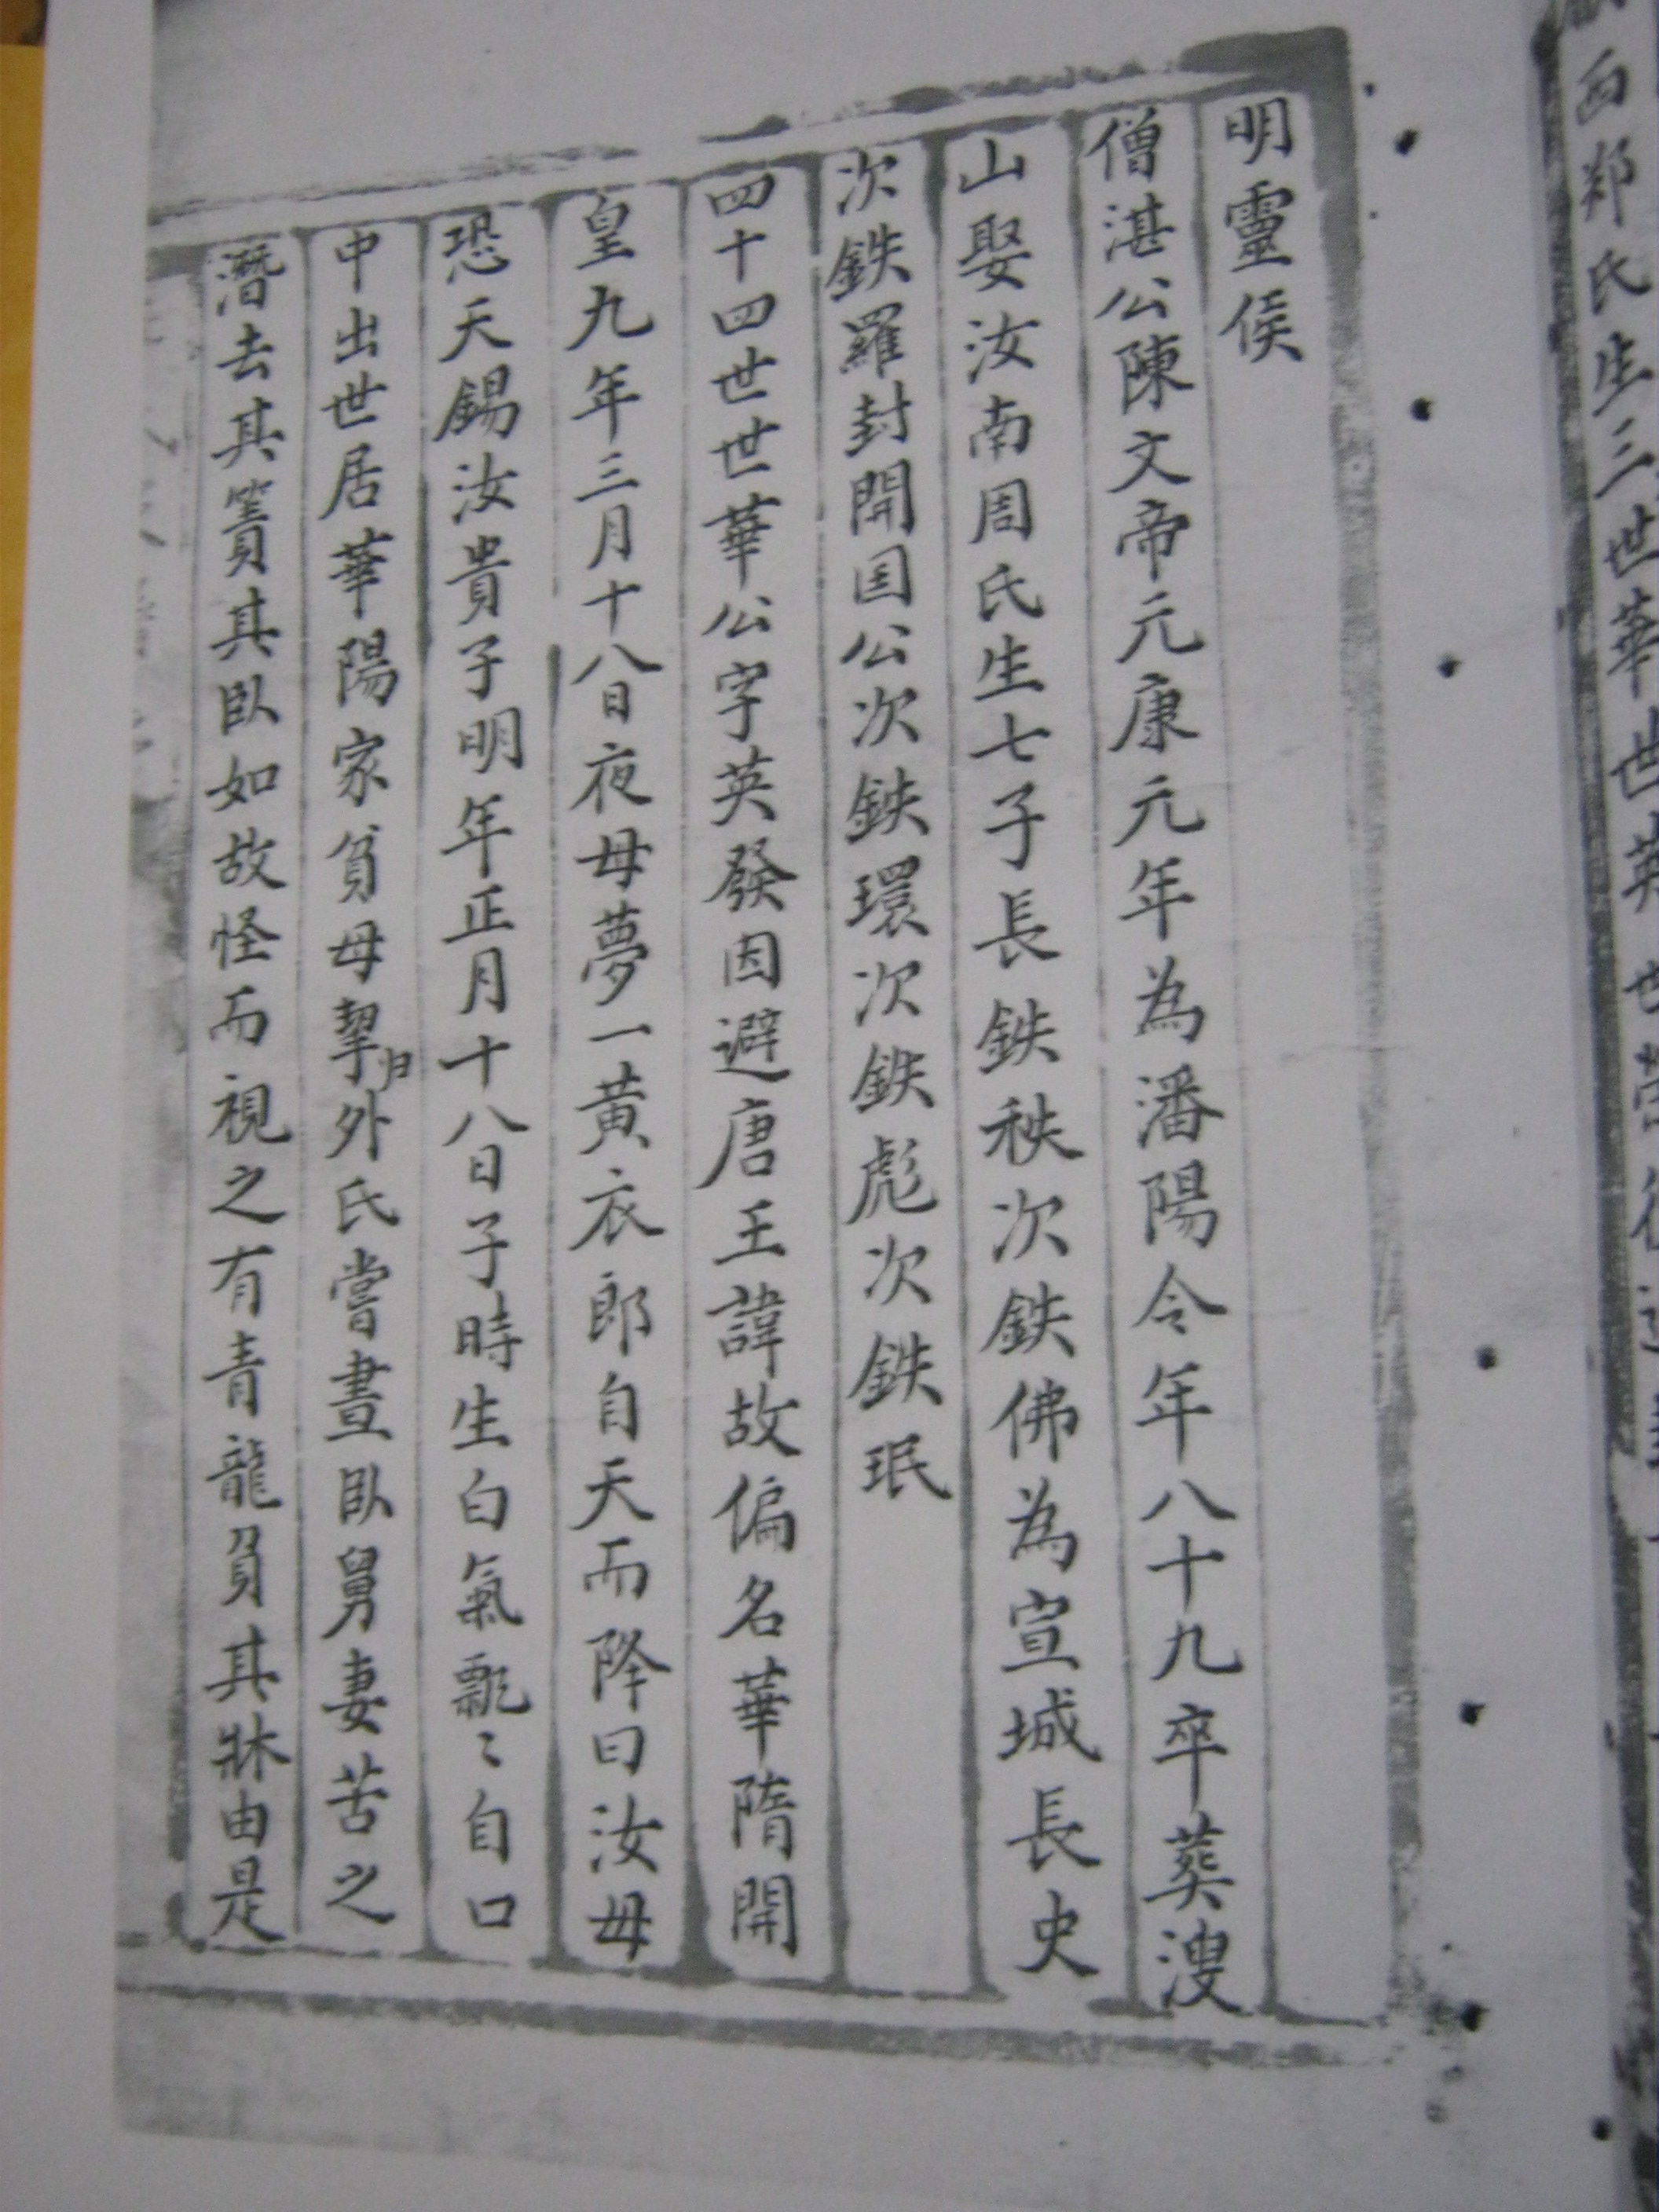 明靈侯
僧湛公陳文帝元康元年為潘陽令年八十九卒葬溲
山娶汝南周氏生七子長鉄秩次鉄佛為宣城長史
次鉄羅封開国公次鉄環次鉄彪次鉄珉
四十四世世華公字英發因避唐王諱故偏名華隋開
皇九年三月十八日夜母夢一黃衣郎自天而降曰汝毋
恐天錫汝貴子明年正月十八日子時生白氣飄〻自口
中出世居華陽家貧母挈歸外氏嘗晝臥舅妻苦之
潛去其簀其臥如故怪而視之有青龍負其牀由是
西郑氏生三世華世英世